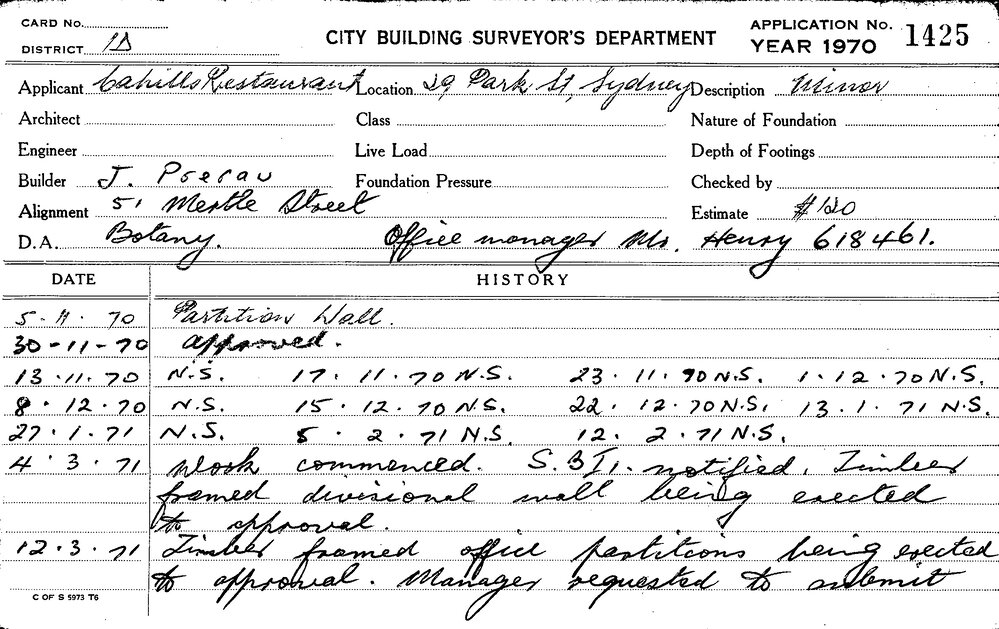 CARD No.
DISTRICT 1D
CITY BUILDING SURVEYOR'S DEPARTMENT
APPLICATION No. 1425
YEAR 1970
Applicant Cahills Restaurant Location 29 Park St, Sydney Description Minor
Architect Class Nature of Foundation
Engineer Live Load Depth of Footings
Builder J. Foundation Pressure Checked by
Alignment 51 Street Estimate $120
D.A. Botany. Office manager Mr. Henry 618461.
DATE HISTORY
5-11-70 Partition Wall.
30-11-70 approved.
13.11.70 N.S. 17.11.70 N.S. 23.11.70 N.S. 1.12.70 N.S.
8.12.70 N.S. 15.12.70 N.S. 22.12.70 N.S. 13.1.71 N.S.
27.1.71 N.S. 5.2.71 N.S. 12.2.71 N.S.
4.3.71 Work commenced. notified. Timber
framed divisional wall being erected
to approval.
12.3.71 Timber framed office partitions being erected
to approval. Manager requested to submit
C OF S 5973 T6